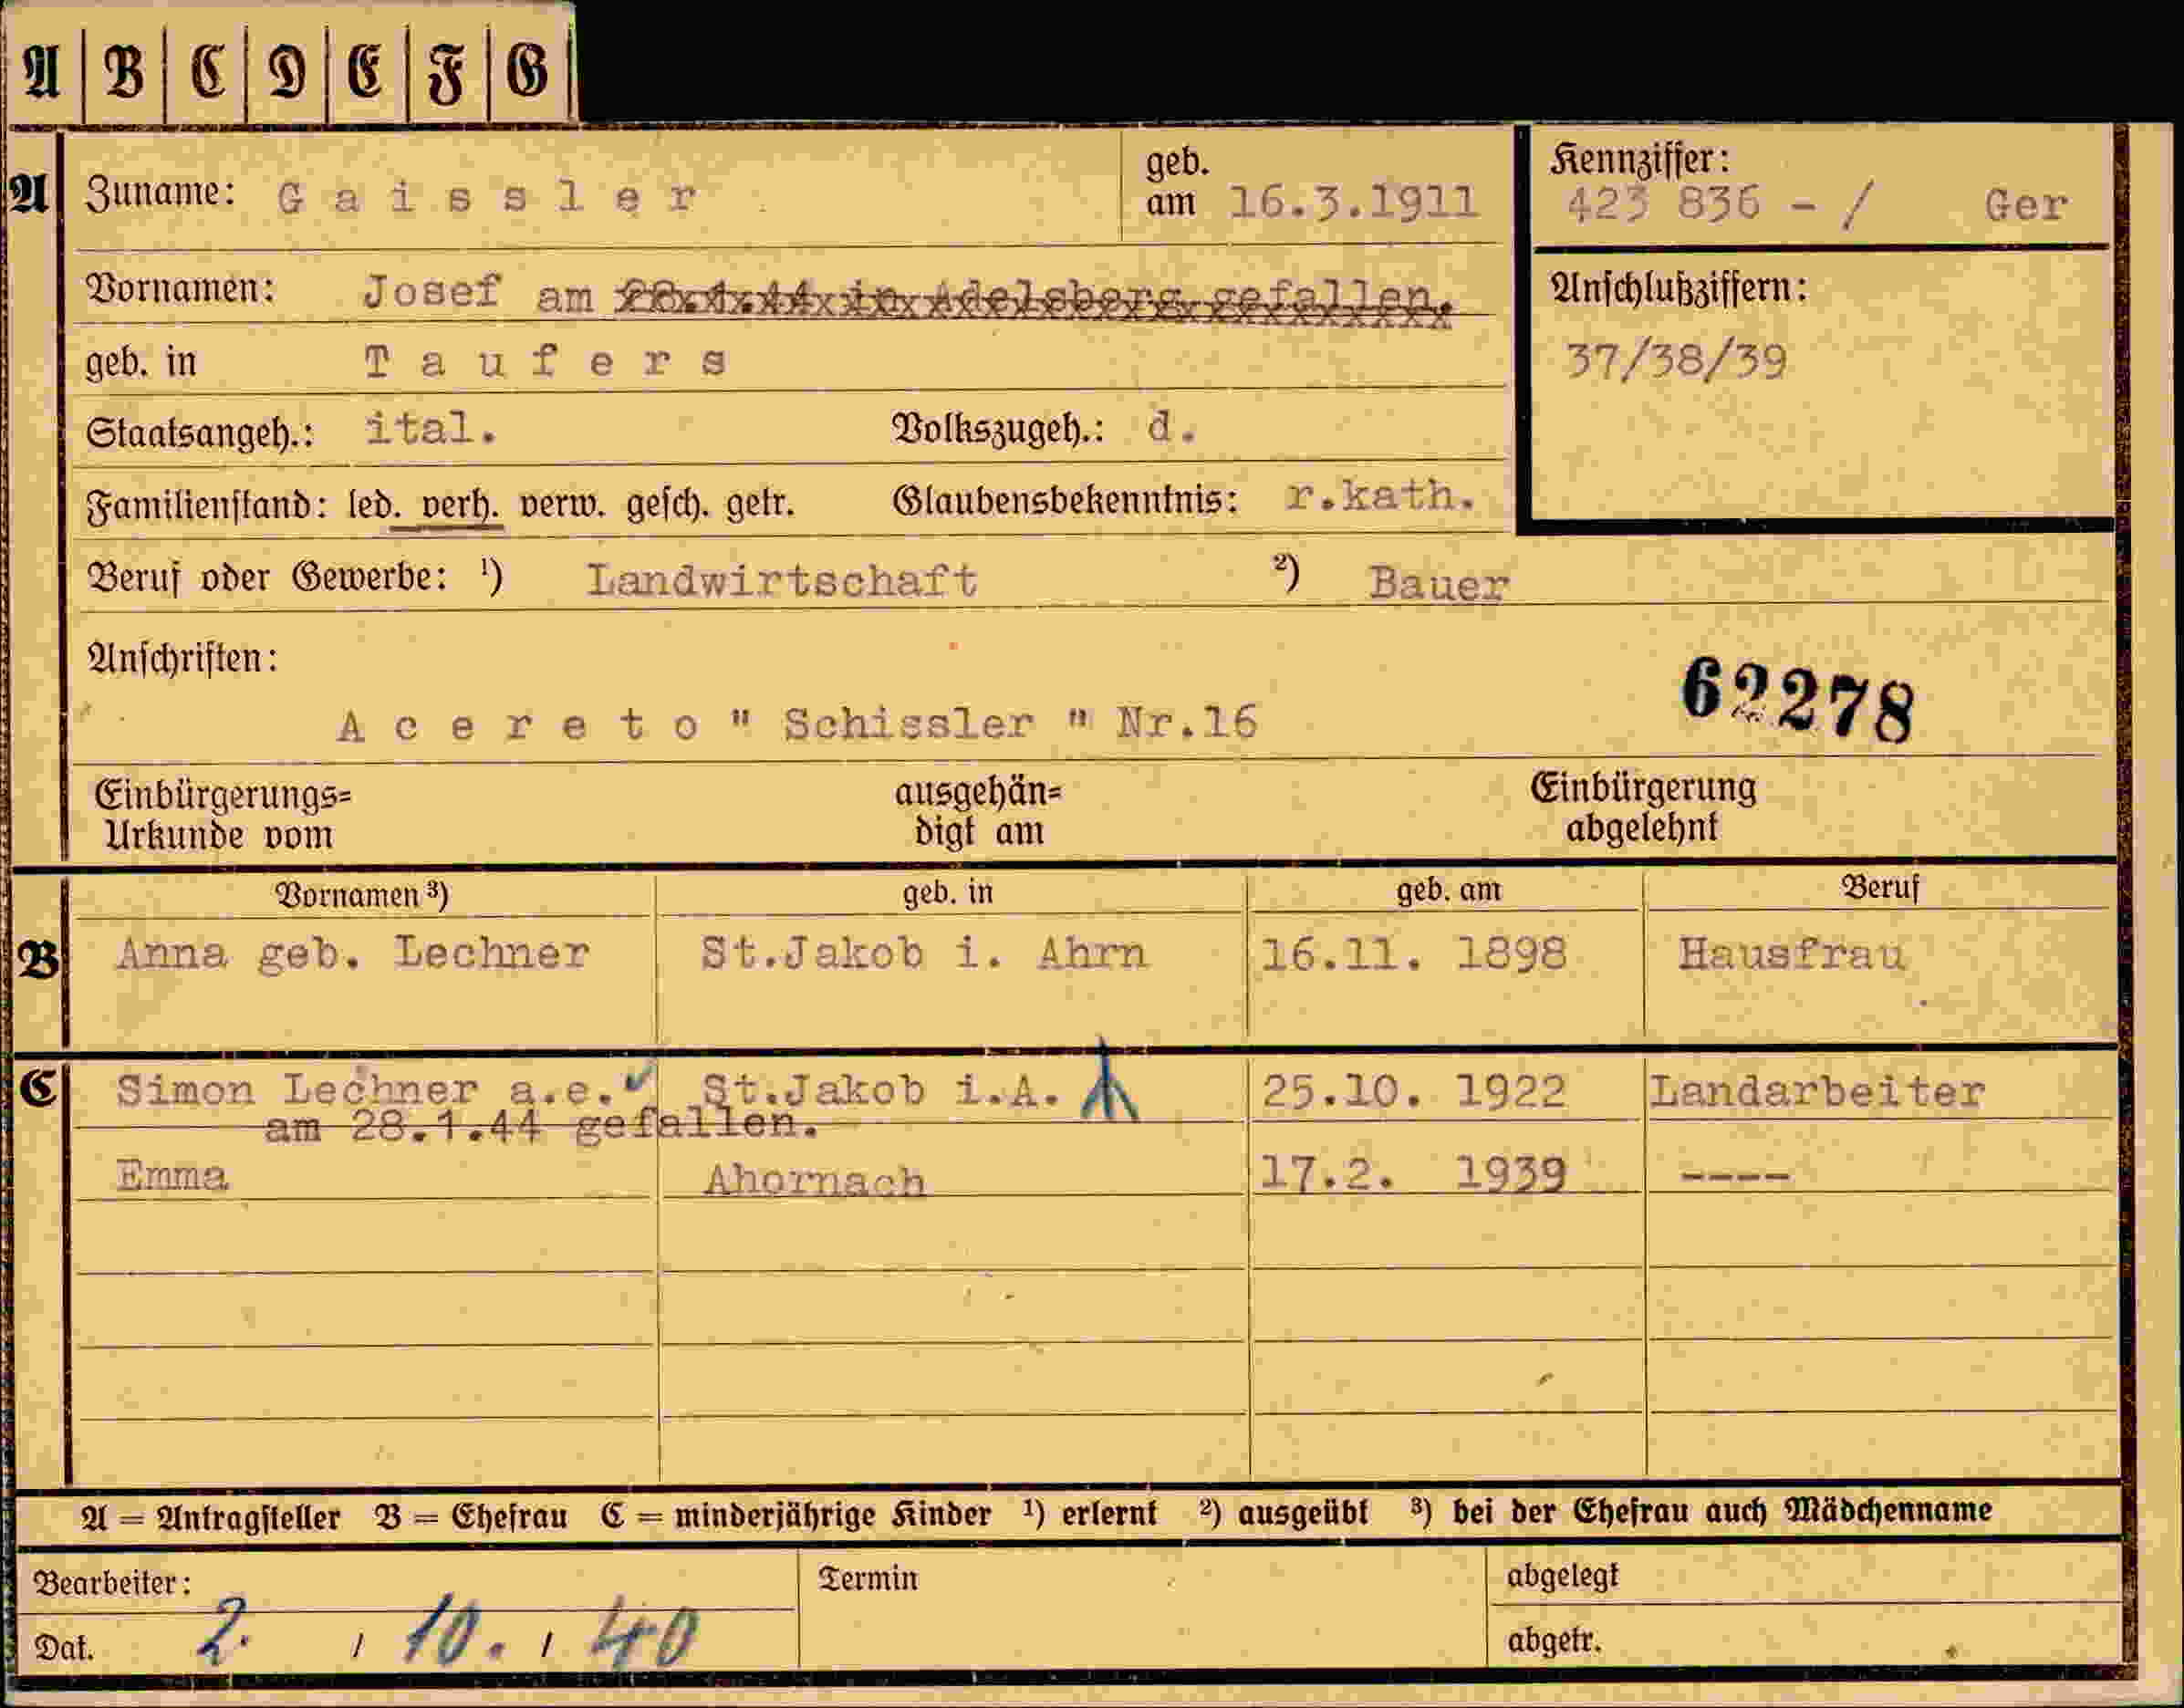 A B C D E F G
A Zuname: Gaissler geb. am 16.3.1911
Kennziffer: 423 836 - / Ger
Vornamen: Josef am 28.1.44 in Adelsberg gefallen.
Anschlußziffern:
geb. in Taufers
37/38/39
Staatsangeh.: ital. Volkszugeh.: d.
Familienstand: led. verh. verw. gesch. getr. Glaubensbekenntnis: r.kath.
Beruf oder Gewerbe: ¹) Landwirtschaft ²) Bauer
Anschriften:
62278
Acereto " Schissler " Nr.16
Einbürgerungs= ausgehän= Einbürgerung
Urkunde vom digt am abgelehnt
Vornamen ³) geb. in geb. am Beruf
B Anna geb. Lechner St.Jakob i. Ahrn 16.11. 1898 Hausfrau
C Simon Lechner a.e. St.Jakob i.A. 25.10. 1922 Landarbeiter
am 28.1.44 gefallen.
Emma Ahornach 17.2. 1939 ----
A = Antragsteller B = Ehefrau C = minderjährige Kinder ¹) erlernt ²) ausgeübt ³) bei der Ehefrau auch Mädchenname
Bearbeiter: Termin abgelegt
Dat. 2. / 10. / 40 abgetr.